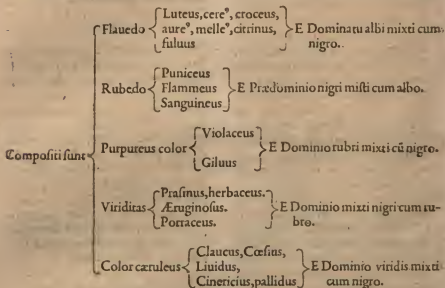 Flauedo Luteus, cereꝰ, croceus, aureꝰ, melleꝰ, citrinus, fuluus E Dominatu albi mixti cum nigro.
Rubedo Puniceus Flammeus Sanguineus E Prædominio nigri misti cum albo.
Compositi sunt
Purpureus color Violaceus Giluus E Dominio rubri mixti cũ nigro.
Viriditas Prasinus, herbaceus. Æruginosus. Porraceus. E Dominio mixti nigri cum rubro.
Color cæruleus Glaucus, Cœsius, Liuidus, Cinericius, pallidus E Dominio viridis mixti cum nigro.